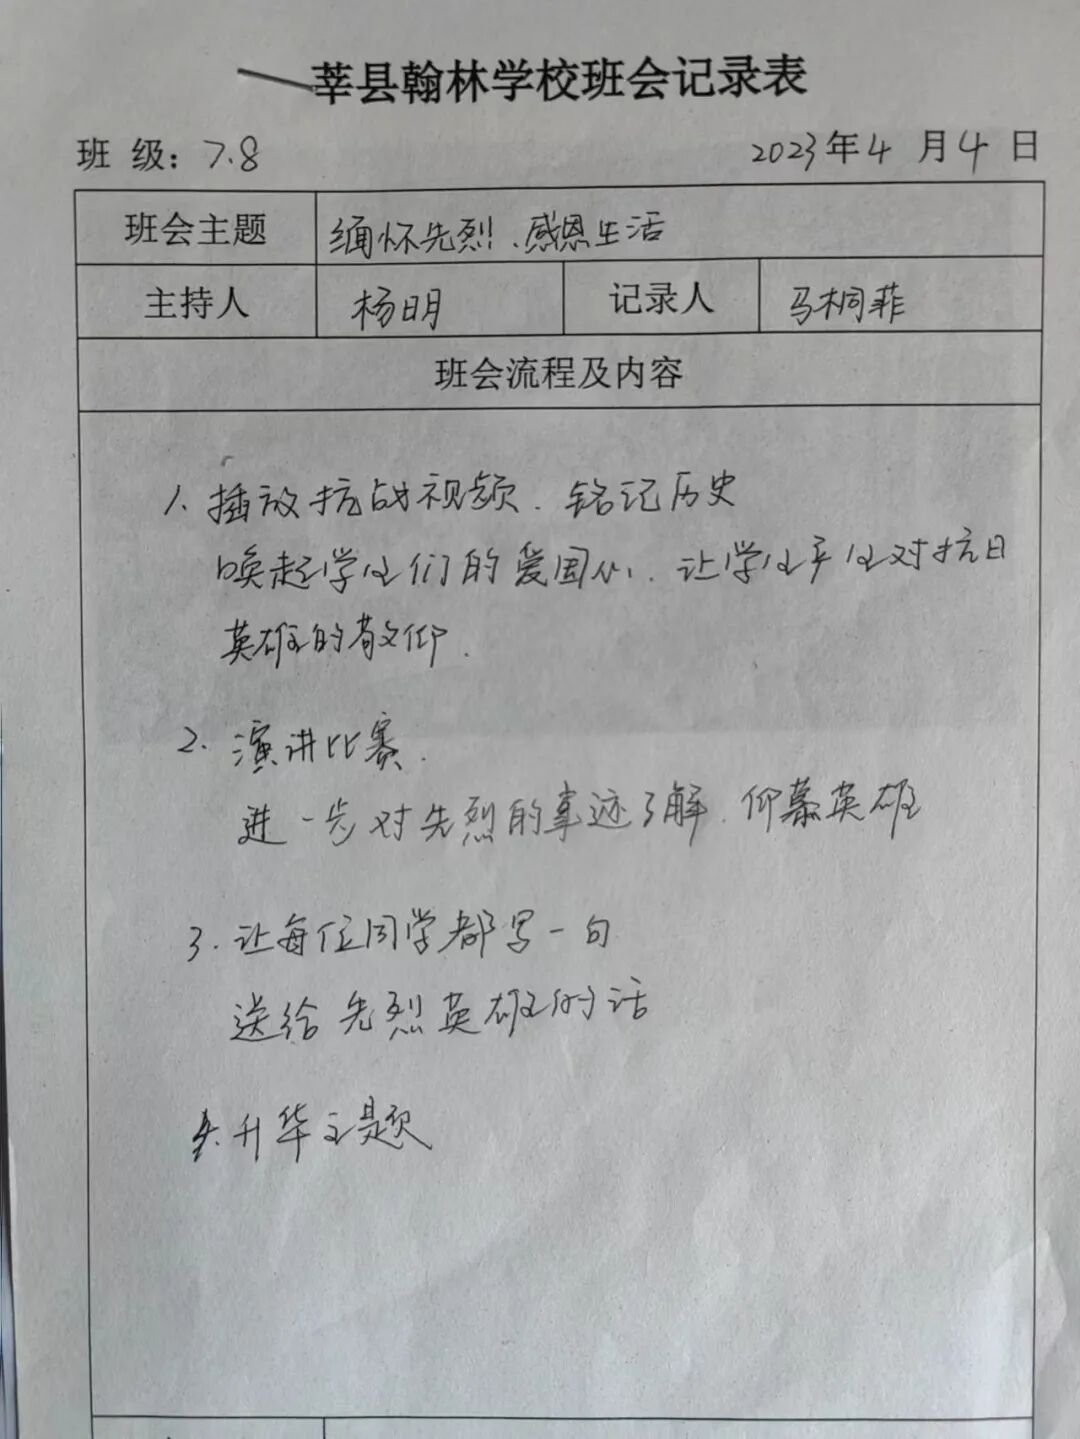 莘县翰林学校班会记录表
班 级：7.8 2023年4月4日
班会主题 缅怀先烈、感恩生活
主持人 杨明 记录人 马桐菲
班会流程及内容
1. 播放抗战视频、铭记历史
唤起学生们的爱国心、让学生产生对抗日
英雄的敬仰.
2. 演讲比赛.
进一步对先烈的事迹了解、仰慕英雄
3. 让每位同学都写一句
送给先烈英雄的话
4. 升华主题